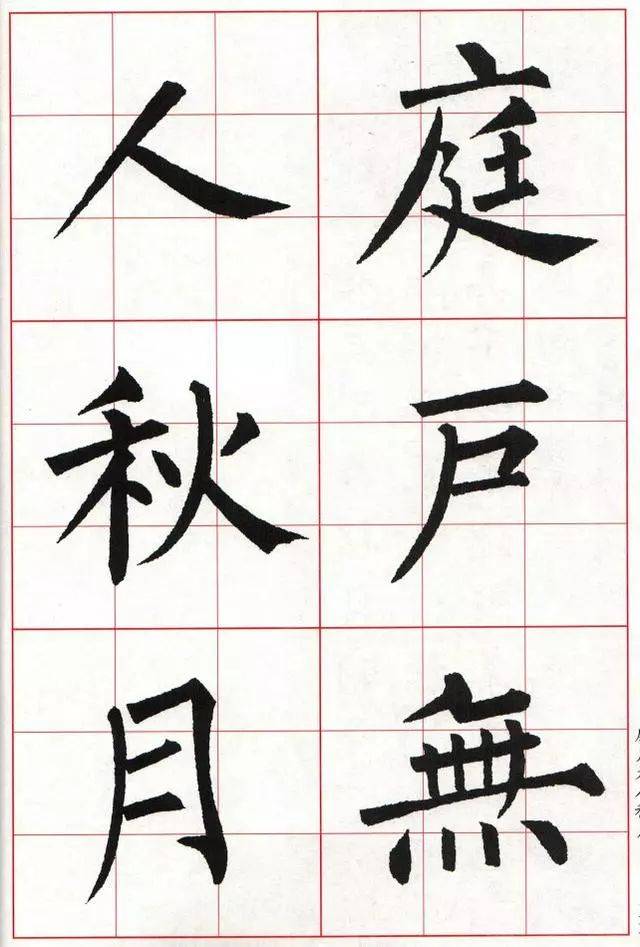 庭戸無
人秋月